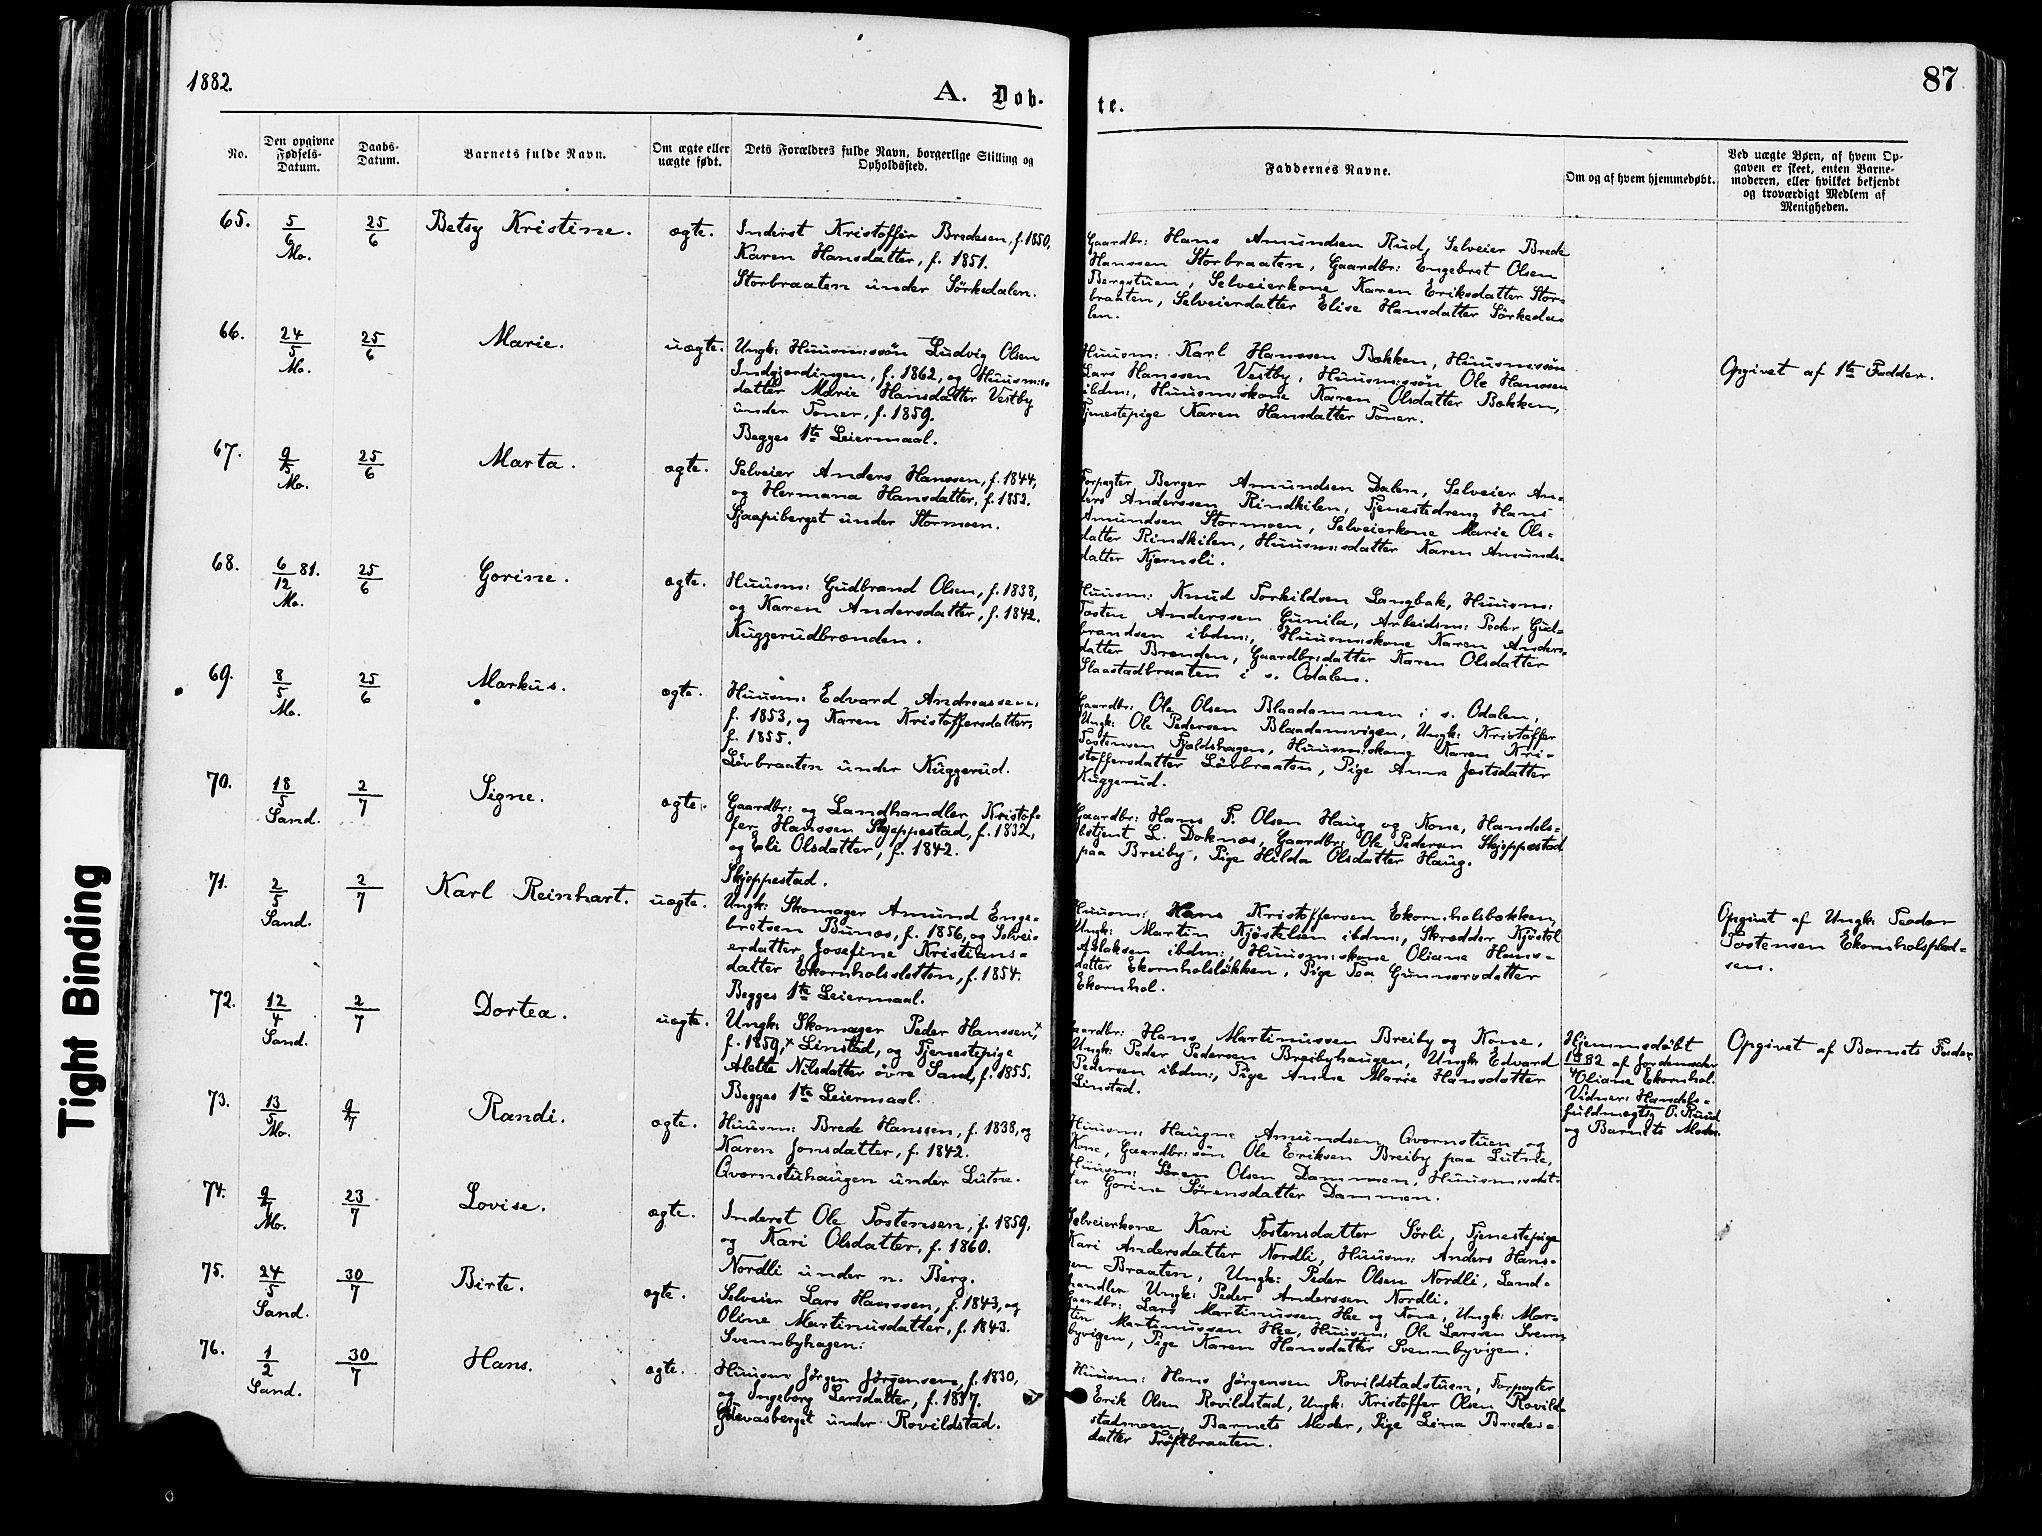 1882.
A. Døb-
te.
87
No.
Den opgivne
Fødsels-
Datum.
Daabs-
Datum.
Barnets fulde Navn.
Om ægte eller
uægte født.
Dets Forældres fulde Navn, borgerlige Stilling og
Opholdssted.
Faddernes Navne.
Om og af hvem hjemmedøbt.
Ved uægte Børn, af hvem Op-
gaven er skeet, enten Barne-
moderen, eller hvilket bekjendt
og troværdigt Medlem af
Menigheden.
65. 5/6 Mo. 25/6 Betsy Kristine. ægte.
Inderst Kristoffer Bredesen, f. 1850,
Karen Hansdatter, f. 1851.
Storbraaten under Sörkedalen.
Gaardbr: Hans Amundsen Rud, Selveier Brede
Hanssen Storbraaten, Gaardbr: Engebret Olsen
Bergstuen, Selveierkone Karen Eriksdatter Stor-
braaten, Selveierdatter Elise Hansdatter Sörkeda-
len.
66. 24/5 Mo. 25/6 Marie. uægte.
Ungk: Huusm:søn Ludvig Olsen
Indgjerdingen, f. 1862, og Huusm:s-
datter Marie Hansdatter Vestby
under Toner, f. 1859.
Begges 1te Leiermaal.
Huusm: Karl Hanssen Bækken, Huusm:søn
Lars Hanssen Vestby, Huusm:søn Ole Hanssen
ibdm:, Huusm:skone Karen Olsdatter Bækken,
Tjenestepige Karen Hansdatter Toner.
Opgivet af 1te Fadder.
67. 9/5 Mo. 25/6 Marta. ægte.
Selveier Anders Hanssen, f. 1844,
og Hermana Hansdatter, f. 1852.
Sjaapiberget under Stormoen.
Forpagter Berger Amundsen Dalen, Selveier An-
ders Anderssen Rindkilen, Tjenestedreng Hans
Amundsen Stormoen, Selveierkone Marie Ols-
datter Rindkilen, Huusm:sdatter Karen Amunds-
datter Kjernsli.
68. 6/12 81. Mo. 25/6 Gorine. ægte.
Huusm: Gudbrand Olsen, f. 1838,
og Karen Andersdatter, f. 1842.
Kuggerudbrænden.
Huusm: Knud Torkildsen Langbak, Huusm:
Tosten Anderssen Gunila, Arbeidsm: Peder Gud-
brandsen ibdm:, Huusm:skone Karen Anders-
datter Brenden, Gaardbr:datter Karen Olsdatter
Slaastadbraaten i s. Odalen.
69. 8/5 Mo. 25/6 Markus. ægte.
Huusm: Edvard Andreassen,
f. 1853, og Karen Kristoffersdatter,
f. 1855.
Lövbraaten under Kuggerud.
Gaardbr: Ole Olsen Blaadammen i s. Odalen,
Ungk: Ole Pedersen Blaadamsvigen, Ungk: Kristoffer
Tostensen Fjeldshagen, Huusm:skone Karen Kri-
stoffersdatter Lövbraaten, Pige Anne Jostsdatter
Kuggerud.
70. 18/5 Sand. 2/7 Signe. ægte.
Gaardbr: og Landhandler Kristof-
fer Hanssen Skjeppestad, f. 1832,
og Eli Olsdatter, f. 1842.
Skjeppestad.
Gaardbr: Hans F. Olsen Haug og Kone, Handels-
betjent L. Doknæs, Gaardbr: Ole Pedersen Skjeppestad
paa Breiby, Pige Hilda Olsdatter Haug.
71. 2/5 Sand. 2/7 Karl Reinhart. uægte.
Ungk: Skomager Amund Enge-
bretsen Bunæs, f. 1856, og Selvei-
erdatter Josefine Kristians-
datter Ekornholssletten, f. 1854.
Begges 1te Leiermaal.
Huusm: Hans Kristoffersen Ekornholsbækken,
Ungk: Martin Kjöstelsen ibdm:, Skrædder Kjöstel
Aslaksen ibdm:, Huusm:skone Oliane Hans-
datter Ekornholsløkken, Pige Toa Gunnersdatter
Ekornhol.
Opgivet af Ungk: Peder
Tostensen Ekornholsplad-
sen.
72. 12/4 Sand. 2/7 Dortea. uægte.
Ungk: Skomager Peder Hanssen,
f. 1859, Linstad, og Tjenestepige
Alette Nilsdatter övre Sand, f. 1855.
Begges 1te Leiermaal.
Gaardbr: Hans Martinussen Breiby og Kone,
Ungk: Peder Pedersen Breibyhaugen, Ungk: Edvard
Pedersen ibdm:, Pige Anne Marie Hansdatter
Linstad.
Hjemmedöbt
82 af Jordemoder
Oliane Ekornhol.
Vidner: Handels-
fuldmægtig O. Ruud
og Barnets Moder.
Opgivet af Barnets Fader
73. 13/5 Mo. 9/7 Randi. ægte.
Huusm: Brede Hanssen, f. 1838, og
Karen Jonsdatter, f. 1842.
Qvernstuhaugen under Lutne.
Huusm: Haugne Amundsen Qvernstuen og
Kone, Gaardbr:søn Ole Eriksen Breiby paa Lutne,
Huusm: Sören Olsen Dammen, Huusm:sdat-
ter Gorine Sörensdatter Dammen.
74. 9/7 Mo. 23/7 Lovise. ægte.
Inderst Ole Tostensen, f. 1859,
og Kari Olsdatter, f. 1860.
Nordli under n. Berg.
Selveierkone Kari Tostensdatter Sörli, Tjenestepige
Kari Andersdatter Nordli, Huusm: Anders Hans-
sen Braaten, Ungk: Peder Olsen Nordli, Land-
handler Ungk: Peder Anderssen Nordli.
75. 24/5 Sand. 30/7 Birte. ægte.
Selveier Lars Hanssen, f. 1843, og
Oline Martinusdatter, f. 1843.
Svennbyhagen.
Gaardbr: Lars Martinussen Hee og Kone, Ungk: Mar-
tin Martinussen Hee, Huusm: Ole Larssen Svenn-
byvigen, Pige Karen Hansdatter Svennbyvigen.
76. 1/2 Sand. 30/7 Hans. ægte.
Huusm: Jörgen Jörgensen, f. 1830,
og Ingeborg Larsdatter, f. 1837.
Grevasberget under Rovildstad.
Huusm: Hans Jörgensen Rovildstadstuen, Forpagter
Erik Olsen Rovildstad, Ungk: Kristoffer Olsen Rovild-
stadmoen, Barnets Moder, Pige Lina Bredes-
datter Tröftbraaten.
Tight Binding